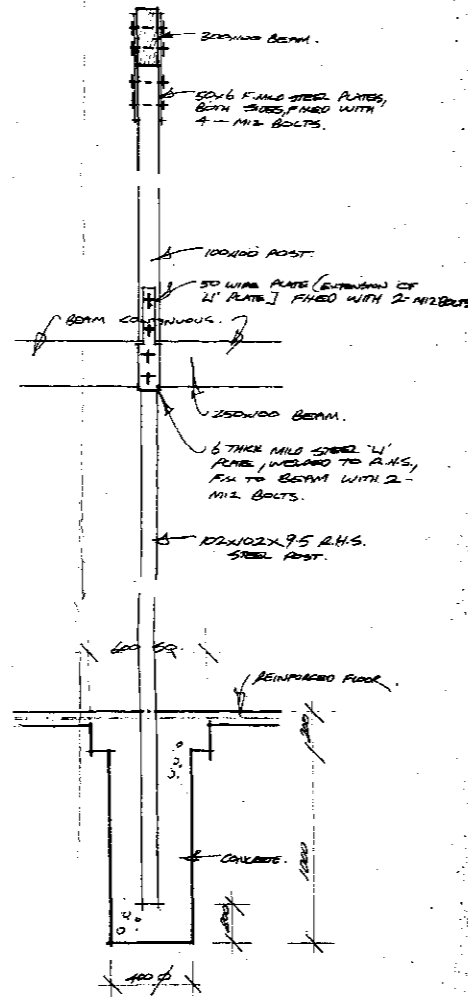 300x100 BEAM.
50x6 F. MILD STEEL PLATES,
BOTH SIDES, FIXED WITH
4 - M12 BOLTS.
100x100 POST.
50 WIDE PLATE (EXTENSION OF
'U' PLATE) FIXED WITH 2-M12 BOLTS
BEAM CONTINUOUS.
250x100 BEAM.
6 THICK MILD STEEL 'U'
PLATE, WELDED TO R.H.S.,
FIX TO BEAM WITH 2-
M12 BOLTS.
102x102x9.5 R.H.S.
STEEL POST.
600 SQ.
REINFORCED FLOOR.
1000
CONCRETE.
400 Ø